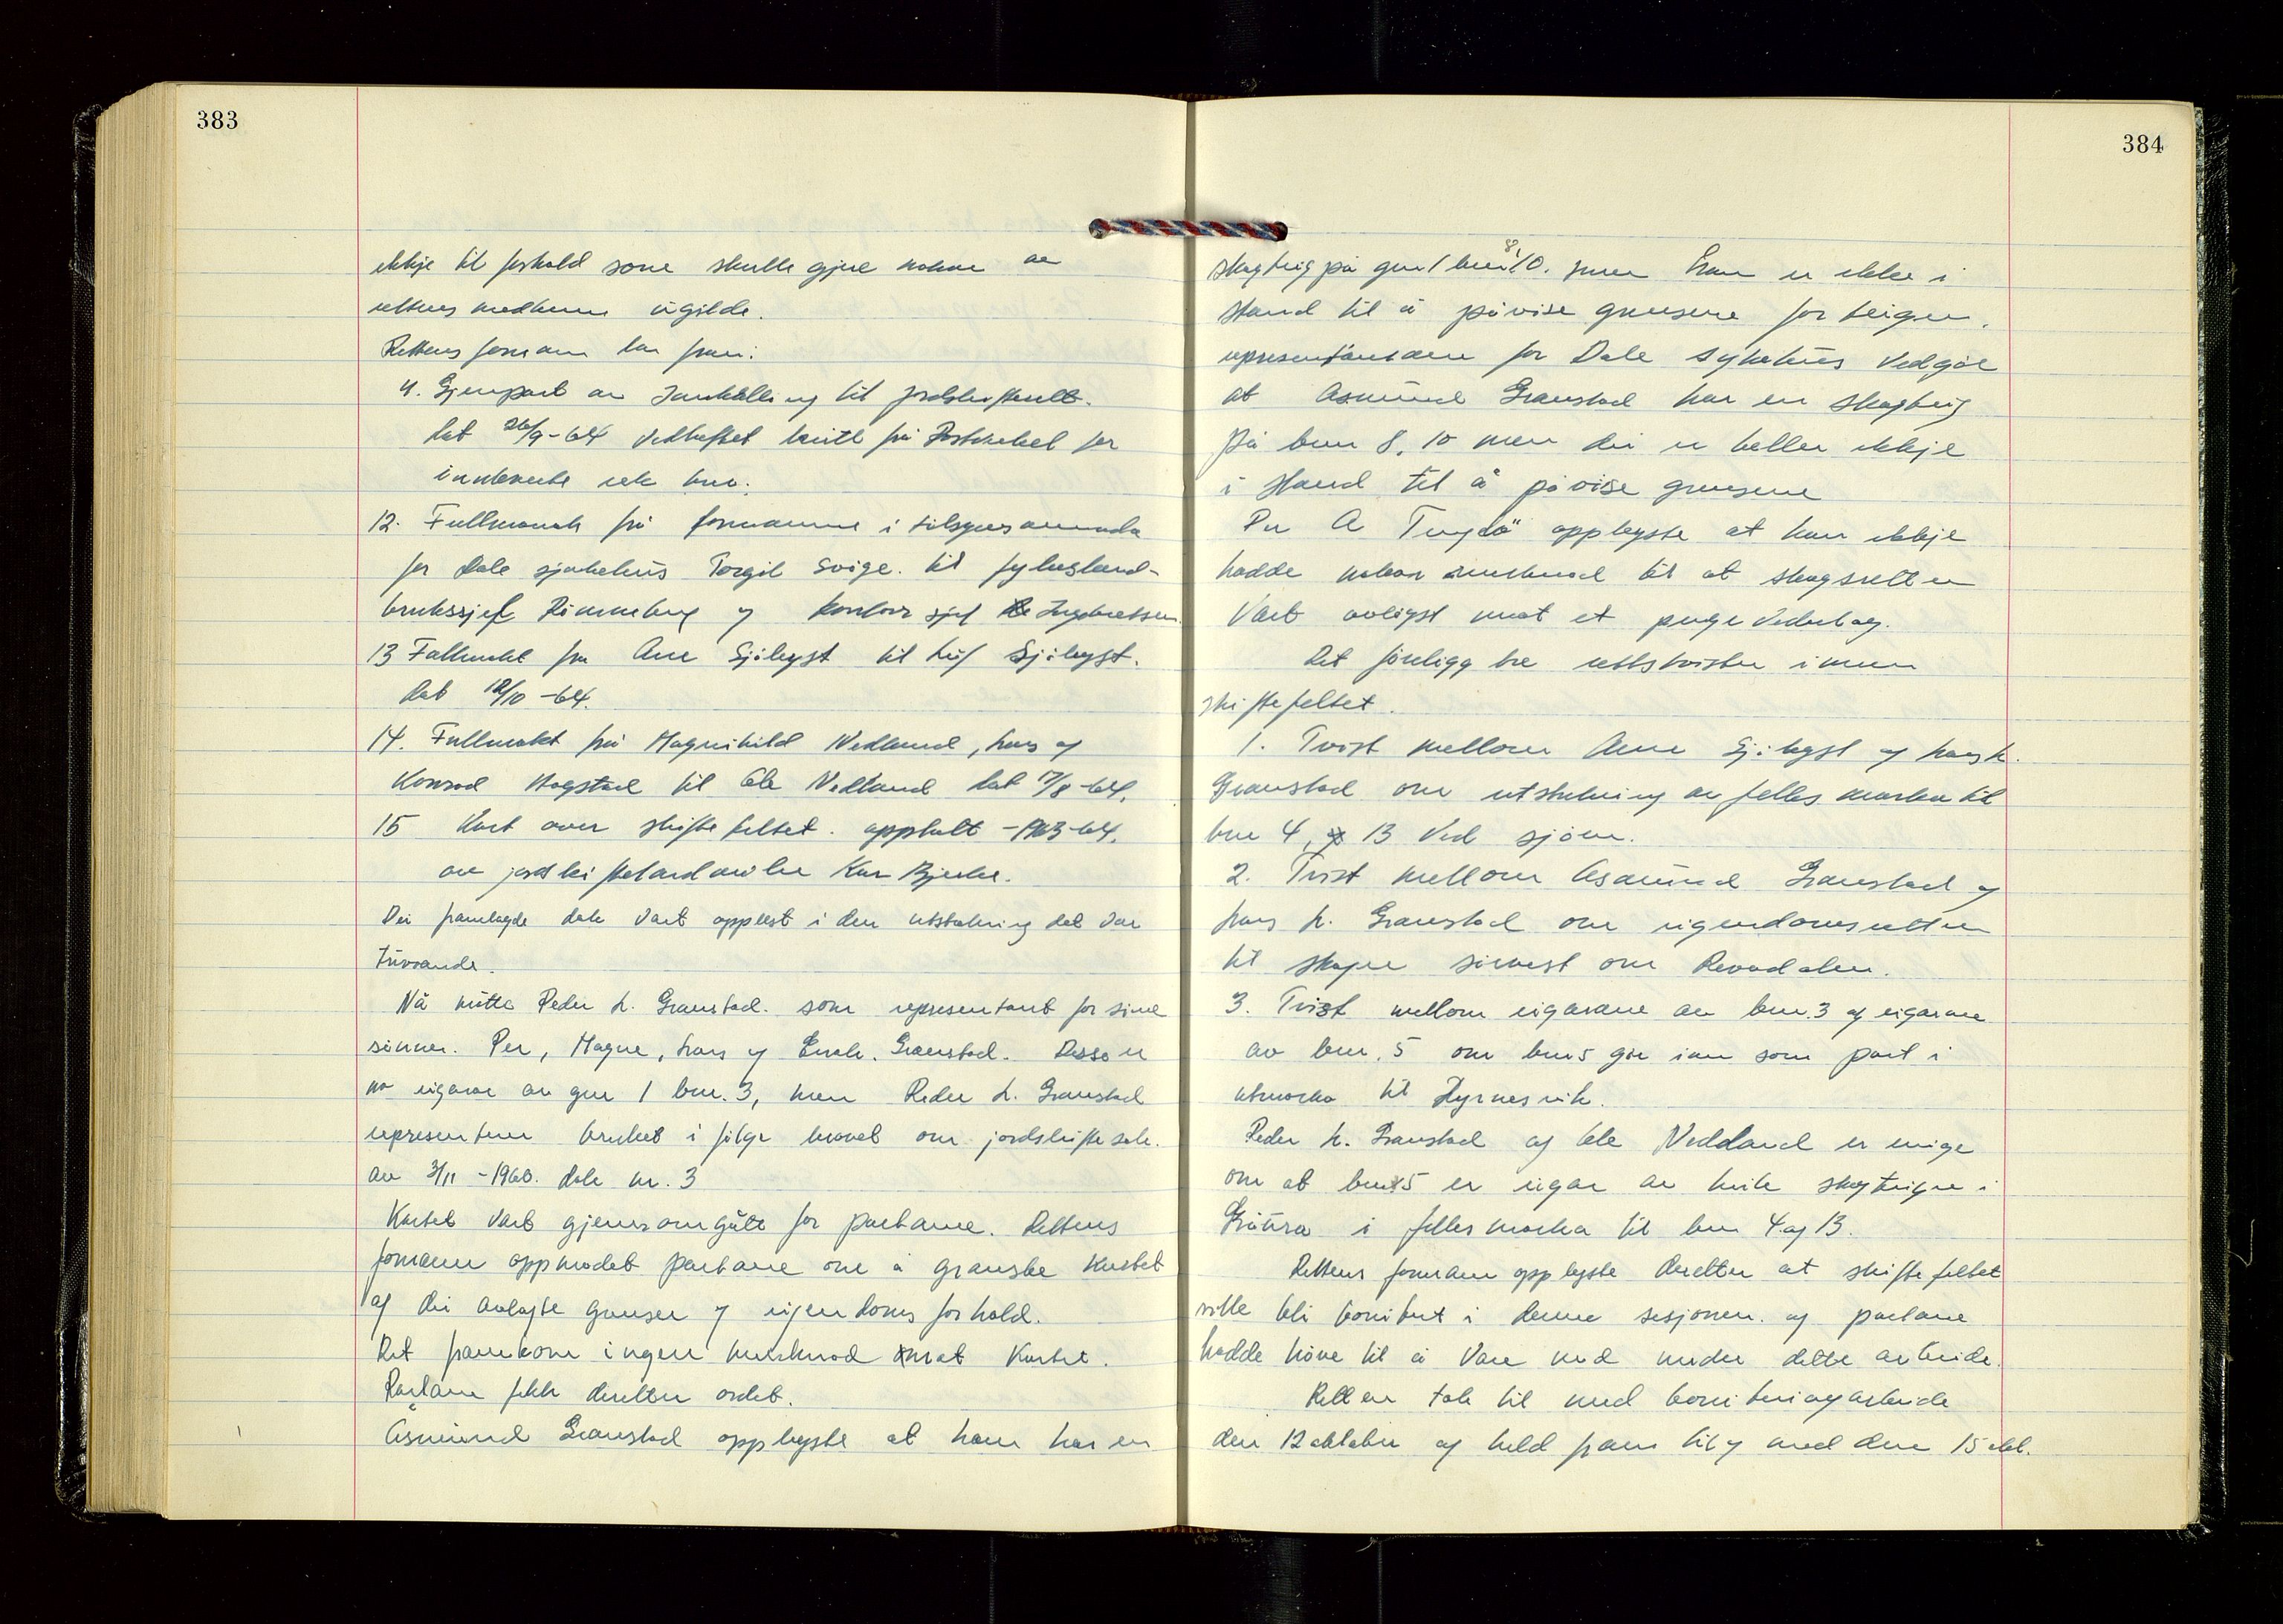 383
ekkje til forhold som skulle gjere nokon av
rettens medlemer ugilde.
Rettens formann la fram:
4. Gjenpart av Innkalling til jordskifterett.
dat 26/9-64 vedheftet kvitt frå Postverket for
innleverte rek brev.
12. Fullmakt frå formannen i tilsynsnemnda
for Dale sjukehus Torgil Svige. til fylkesland-
brukssjef Rimmeberg og kontorsjef Ingebretsen
13 Fullmakt fra Arne Sjöbygst til Leif Sjöbygst.
dat 12/10-64.
14. Fullmakt frå Magnhild Vedland, Lars og
Konrad Hogstad til Ole Vedland dat 17/8-64.
15 Kart over skiftefeltet. oppholt -1963-64.
av jordskiftekandidat Kar Bjerke.
Dei framlagde dok vart opplest i den utstrekning det var
turvande.
Nå møtte Peder L. Gramstad. som representant for sine
sönner. Per, Magne, Lars og Enok. Gramstad. Desse er
no eigarar av gnr 1 bnr. 3, men Peder L. Gramstad
representerer bruket i følge kravet om jordskiftesak.
av 3/11 -1960. dok nr. 3
Kartet vart gjennomgått for partane. Rettens
formann oppmodet partane om å granske kartet
og dei avlagte grenser og eigendomsforhold.
Det framkom ingen merknad mot Kartet.
Partane fekk deretter ordet.
Asmund Gramstad opplyste at han har en
384
skogteig på gnr 1 bnr 8, 10. men han er ikke i
stand til å påvise grensene for teigen.
representantane for Dale sykehus vedgår
at Asmund Gramstad har en skogteig
på bnr 8, 10 men dei er heller ekkje
i stand til å påvise grensene
Per A Tengsdö opplyste at han ekkje
hadde nokon merknad til at skogretten
vart avløyst mot et penge vederlag.
Det föreligg tre rettstvister innen
skiftefeltet.
1. Tvist mellom Arne Sjöbygst og Lars L.
Gramstad om utstrekning av felles marka til
bnr 4, 13 ved sjöen.
2. Tvist mellom Asmund Gramstad og
Lars L. Gramstad om eigendomsretten
til skogen sörvest om Revadalen.
3. Tvist mellom eigarane av bnr. 3 og eigarane
av bnr. 5 om bnr 5 går inn som part i
utmarka til Dyrnesvik.
Peder L. Gramstad og Ole Vedland er enige
om at bnr 5 er eigar av heile skogteigen i
i felles marka til bnr 4 og 13.
Rettens formann opplyste deretter at skiftefeltet
ville bli bonitert i denne sesjonen. og partane
hadde höve til å vare med under dette arbeide.
Retten tok til med boniteringsarbeide
den 12 oktober og held fram til og med den 15 okt.